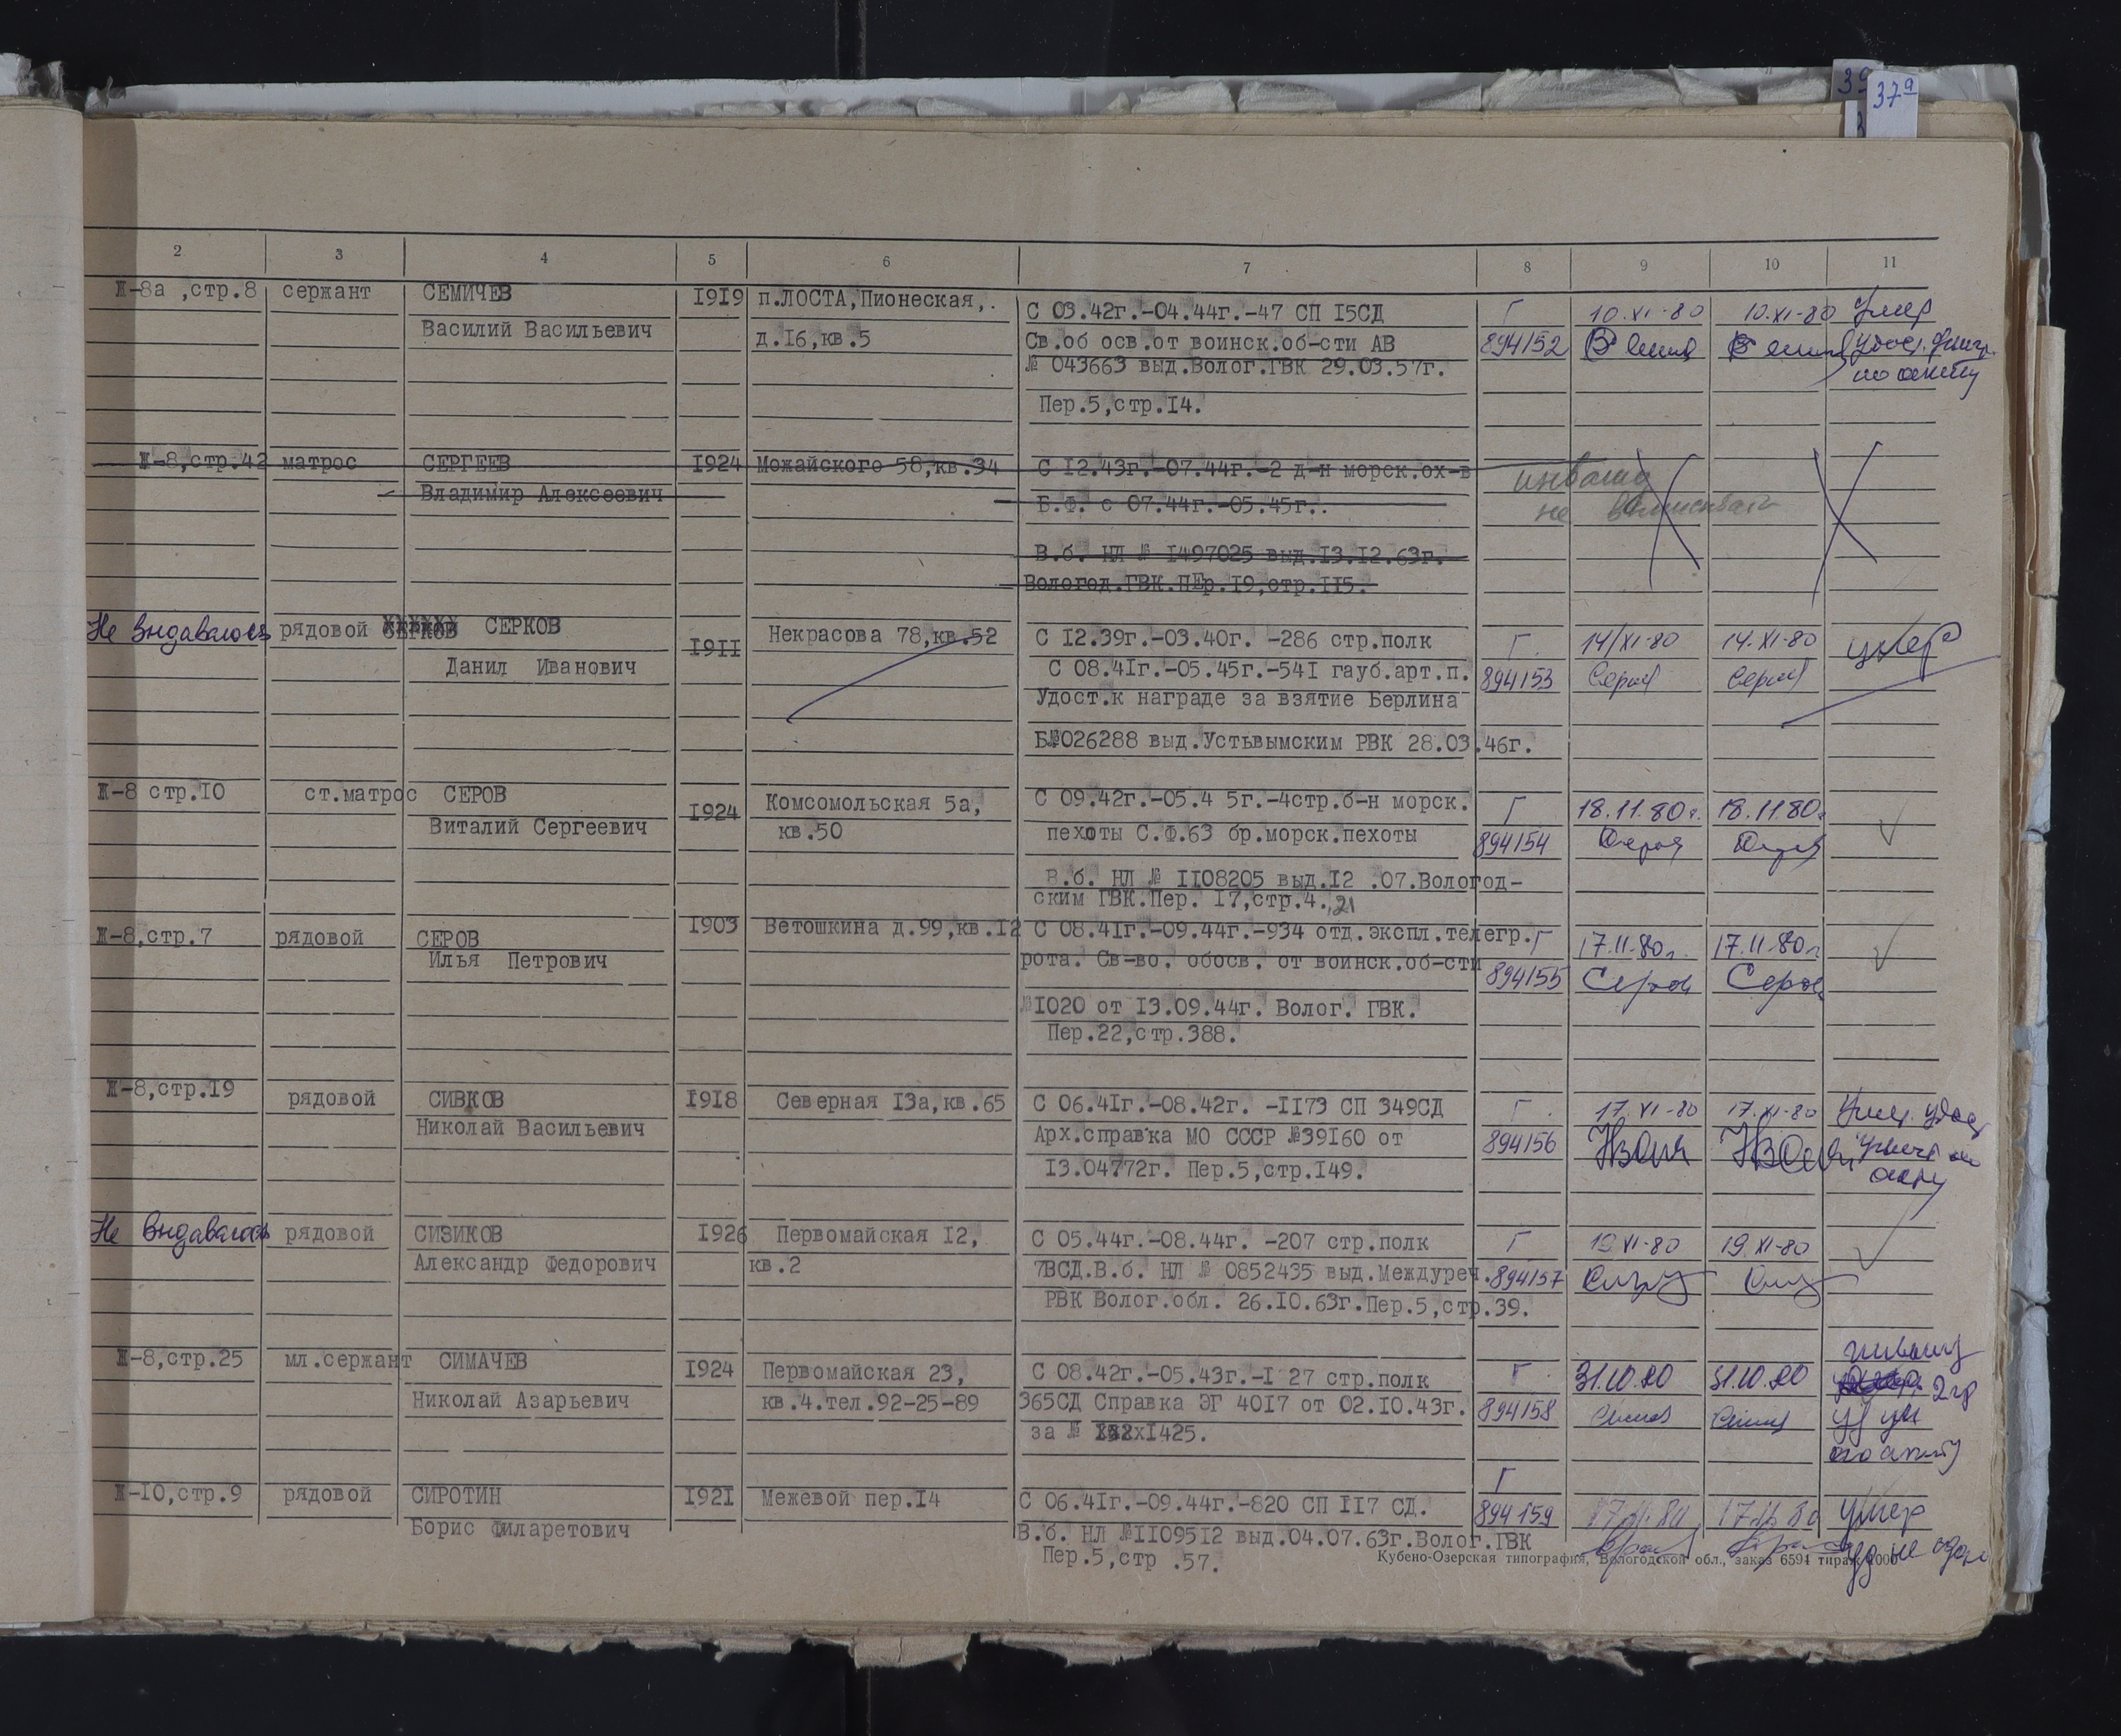 37а
2 3 4 5 6 7 8 9 10 11
Ж-8а ,стр.8 сержант СЕМИЧЕВ 1919 п.ЛОСТА,Пионеская,. С 03.42г.-04.44г.-47 СП 15СД Г 10.XI-80 10.XI-80 Умер
Василий Васильевич д.16,кв.5 Св.об осв.от воинск.об-сти АВ 894152
№ 043663 выд.Волог.ГВК 29.03.57г. по акту
Пер.5,стр.14.
Ж-8,стр.42 матрос СЕРГЕЕВ 1924 Можайского 58,кв.34 С 12.43г.-07.44г.-2 д-н морск.ох-в инвалид
Владимир Алексеевич Б.Ф. с 07.44г.-05.45г.. не
В.б. НЛ № 1497025 выд.13.12.63г.
Вологод.ГВК.ПЕр.19,стр.115.
Не выдавалось рядовой СЕРКОВ СЕРКОВ 1911 Некрасова 78,кв.52 С 12.39г.-03.40г. -286 стр.полк Г. 14/XI-80 14.XI-80 умер
Данил Иванович С 08.41г.-05.45г.-541 гауб.арт.п. 894153
Удост.к награде за взятие Берлина
Б№026288 выд.Устьвымским РВК 28.03.46г.
Ж-8 стр.10 ст.матрос СЕРОВ 1924 Комсомольская 5а, С 09.42г.-05.4 5г.-4стр.б-н морск. Г 18.11.80г. 18.11.80г
Виталий Сергеевич кв.50 пехоты С.Ф.63 бр.морск.пехоты 894154
В.б. НЛ № 1108205 выд.12 .07.Вологод-
ским ГВК.Пер. 17,стр.4.,21
Ж-8,стр.7 рядовой СЕРОВ 1903 Ветошкина д.99,кв.12 С 08.41г.-09.44г.-934 отд.экспл.телегр. Г 17.11.80г. 17.11.80г
Илья Петрович рота. Св-во. обосв. от воинск.об-сти 894155 Серов Серов
№1020 от 13.09.44г. Волог. ГВК.
Пер.22,стр.388.
Ж-8,стр.19 рядовой СИВКОВ 1918 Северная 13а,кв.65 С 06.41г.-08.42г. -1173 СП 349СД Г. 17.XI-80 17.XI-80
Николай Васильевич Арх.справка МО СССР №39160 от 894156
13.04772г. Пер.5,стр.149.
Не выдавалось рядовой СИЗИКОВ 1926 Первомайская 12, С 05.44г.-08.44г. -207 стр.полк Г 19 XI-80 19.XI-80
Александр Федорович кв.2 7ВСД.В.б. НЛ № 0852435 выд.Междуреч. 894157
РВК Волог.обл. 26.10.63г.Пер.5,стр.39.
Ж-8,стр.25 мл.сержант СИМАЧЕВ 1924 Первомайская 23, С 08.42г.-05.43г.-1 27 стр.полк Г. 31.10.80 31.10.80 2гр
Николай Азарьевич кв.4.тел.92-25-89 365СД Справка ЭГ 4017 от 02.10.43г. 894158
за № 1425. по акту
Ж-10,стр.9 рядовой СИРОТИН 1921 Межевой пер.14 С 06.41г.-09.44г.-820 СП 117 СД. Г 894159 умер
Борис Филаретович В.б. НЛ №1109512 выд.04.07.63г.Волог.ГВК
Пер.5,стр .57.
Кубено-Озерская типография, Вологодской обл., заказ 6594 тираж